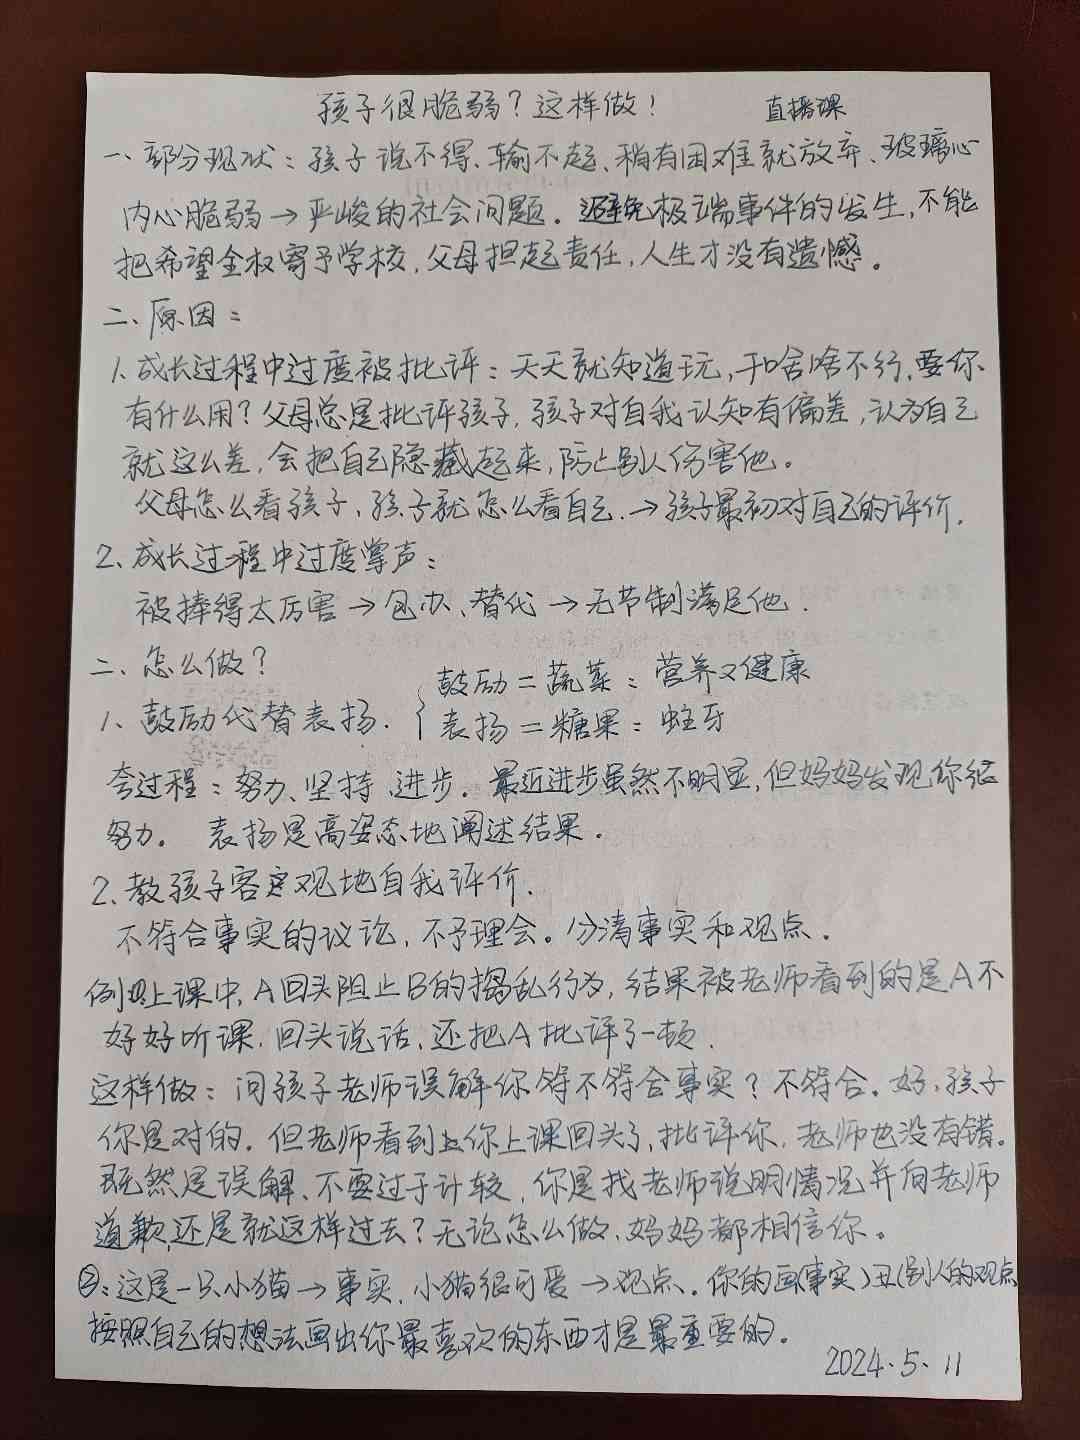 孩子很脆弱？这样做！ 直播课
一、部分现状：孩子说不得、输不起、稍有困难就放弃、玻璃心
内心脆弱→严峻的社会问题。避免极端事件的发生，不能
把希望全权寄予学校，父母担起责任，人生才没有遗憾。
二、原因：
1、成长过程中过度被批评：天天就知道玩，干啥啥不行，要你
有什么用？父母总是批评孩子，孩子对自我认知有偏差，认为自己
就这么差，会把自己隐藏起来，防止别人伤害他。
父母怎么看孩子，孩子就怎么看自己．→孩子最初对自己的评价．
2、成长过程中过度掌声：
被捧得太厉害→包办、替代→无节制满足他．
二、怎么做？
1、鼓励代替表扬．{鼓励＝蔬菜：营养又健康
表扬＝糖果：蛀牙
夸过程：努力、坚持、进步．最近进步虽然不明显，但妈妈发现你很
努力。 表扬是高姿态地阐述结果．
2、教孩子客观地自我评价．
不符合事实的议论，不予理会。分清事实和观点．
例：上课中，A回头阻止B的捣乱行为，结果被老师看到的是A不
好好听课，回头说话，还把A批评了一顿．
这样做：问孩子老师误解你符不符合事实？不符合。好，孩子
你是对的．但老师看到你上课回头了，批评你，老师也没有错。
既然是误解、不要过于计较，你是找老师说明情况并向老师
道歉，还是就这样过去？无论怎么做，妈妈都相信你。
②：这是一只小猫→事实．小猫很可爱→观点．你的画(事实)丑(别人的观点
按照自己的想法画出你最喜欢的东西才是最重要的。
2024.5.11